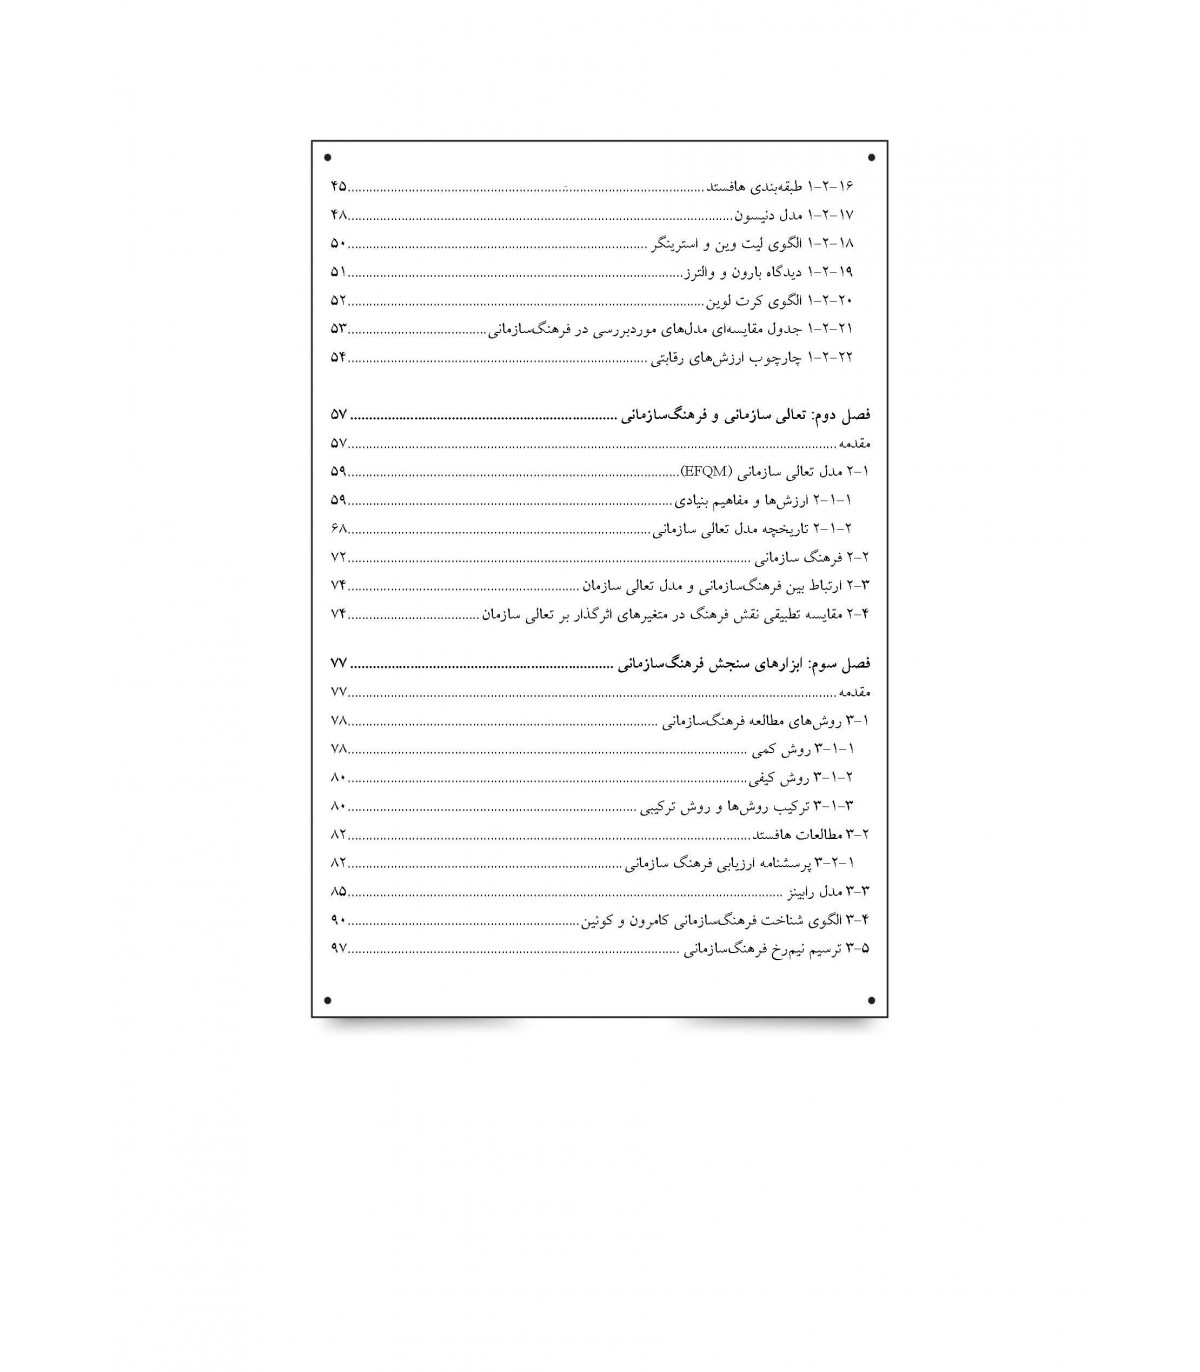 ۱-۲-۱۶ طبقه‌بندی هافستد ........ ۴۵
۱-۲-۱۷ مدل دنیسون ........ ۴۸
۱-۲-۱۸ الگوی لیت وین و استرینگر ........ ۵۰
۱-۲-۱۹ دیدگاه بارون و والترز ........ ۵۱
۱-۲-۲۰ الگوی کرت لوین ........ ۵۲
۱-۲-۲۱ جدول مقایسه‌ای مدل‌های موردبررسی در فرهنگ‌سازمانی ........ ۵۳
۱-۲-۲۲ چارچوب ارزش‌های رقابتی ........ ۵۴
فصل دوم: تعالی سازمانی و فرهنگ‌سازمانی ........ ۵۷
مقدمه ........ ۵۷
۲-۱ مدل تعالی سازمانی (EFQM) ........ ۵۹
۲-۱-۱ ارزش‌ها و مفاهیم بنیادی ........ ۵۹
۲-۱-۲ تاریخچه مدل تعالی سازمانی ........ ۶۸
۲-۲ فرهنگ سازمانی ........ ۷۲
۲-۳ ارتباط بین فرهنگ‌سازمانی و مدل تعالی سازمان ........ ۷۴
۲-۴ مقایسه تطبیقی نقش فرهنگ در متغیرهای اثرگذار بر تعالی سازمان ........ ۷۴
فصل سوم: ابزارهای سنجش فرهنگ‌سازمانی ........ ۷۷
مقدمه ........ ۷۷
۳-۱ روش‌های مطالعه فرهنگ‌سازمانی ........ ۷۸
۳-۱-۱ روش کمی ........ ۷۸
۳-۱-۲ روش کیفی ........ ۸۰
۳-۱-۳ ترکیب روش‌ها و روش ترکیبی ........ ۸۰
۳-۲ مطالعات هافستد ........ ۸۲
۳-۲-۱ پرسشنامه ارزیابی فرهنگ سازمانی ........ ۸۲
۳-۳ مدل رابینز ........ ۸۵
۳-۴ الگوی شناخت فرهنگ‌سازمانی کامرون و کوئین ........ ۹۰
۳-۵ ترسیم نیم‌رخ فرهنگ‌سازمانی ........ ۹۷